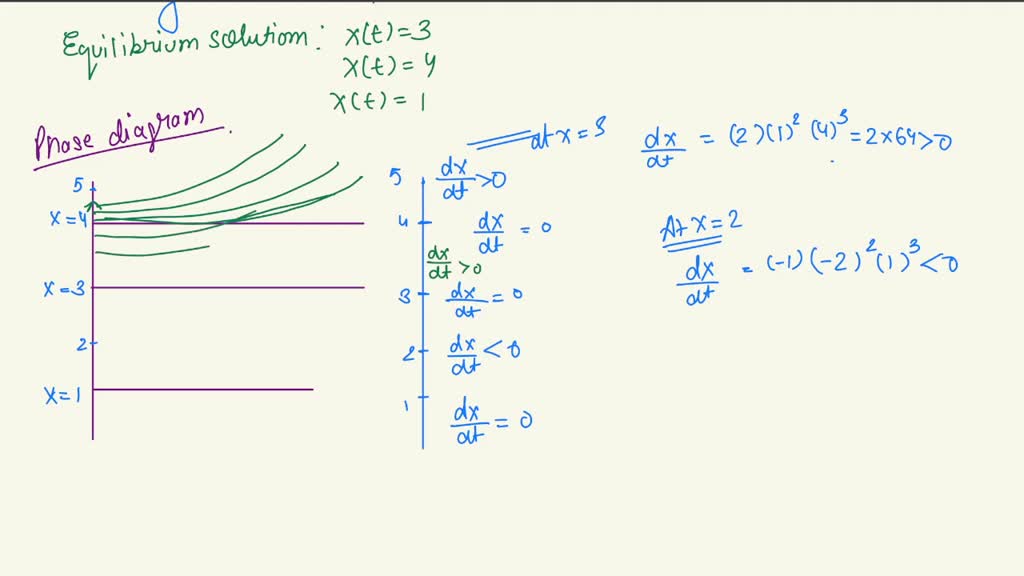 Equilibrium solution: x(t)=3
x(t)=4
x(t)=1
Phase diagram.
5
x=4
x=3
2
x=1
at x=3
5 dx/dt>0
4 dx/dt=0
dx/dt>0
3 dx/dt=0
2 dx/dt<0
1 dx/dt=0
dx/dt = (2)(1)²(4)³=2×64>0
At x=2
dx/dt = (-1)(-2)²(1)³<0